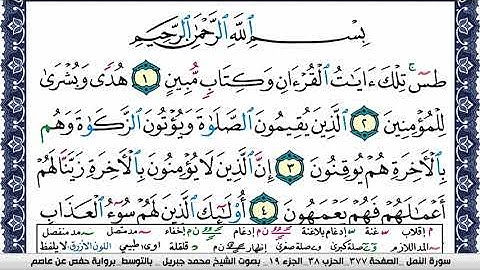 بِسْمِ ٱللَّهِ ٱلرَّحْمَٰنِ ٱلرَّحِيمِ
طسٓ ۚ تِلْكَ ءَايَٰتُ ٱلْقُرْءَانِ وَكِتَابٍ مُّبِينٍ ١ هُدًى وَبُشْرَىٰ
لِلْمُؤْمِنِينَ ٢ ٱلَّذِينَ يُقِيمُونَ ٱلصَّلَوٰةَ وَيُؤْتُونَ ٱلزَّكَوٰةَ وَهُم
بِٱلْءَاخِرَةِ هُمْ يُوقِنُونَ ٣ إِنَّ ٱلَّذِينَ لَا يُؤْمِنُونَ بِٱلْءَاخِرَةِ زَيَّنَّا لَهُمْ
أَعْمَٰلَهُمْ فَهُمْ يَعْمَهُونَ ٤ أُو۟لَٰٓئِكَ ٱلَّذِينَ لَهُمْ سُوٓءُ ٱلْعَذَابِ
م إقلاب غنة إدغام بلاغنة ن م إدغام ن م إخفاء مد متصل مد منفصل
المد اللازم صلة كبرى وصلة صغرى إظهار ن م قلقلة طبيعي اللون الأزرق لا يلفظ
سورة النمل _ الصفحة ٣٧٧ _ الحزب ٣٨ _ الجزء ١٩ _ بصوت الشيخ محمد جبريل _ بالتوسط _ برواية حفص عن عاصم